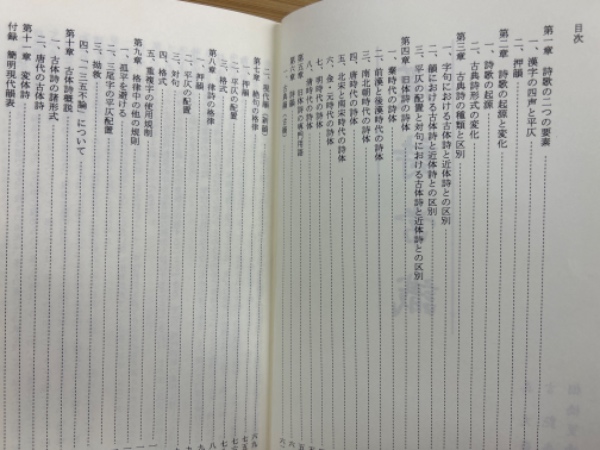 目次
第一章 詩歌の二つの要素
一、漢字の四声と平仄
二、押韻
第二章 詩歌の起源と変化
一、詩歌の起源
二、古典詩形式の変化
第三章 古典詩の種類と区別
一、字句における古体詩と近体詩との区別
二、韻における古体詩と近体詩との区別
三、平仄の配置と対句における古体詩と近体詩との区別
第四章 旧日の詩体
一、秦時代の詩体
二、前漢と後漢時代の詩体
三、南北朝時代の詩体
四、唐時代の詩体
五、北宋と南宋時代の詩体
六、金・元時代の詩体
七、明時代の詩体
八、清時代の詩体
第五章 旧体詩の専門用語
第六章 詩韻
二、現代韻(新韻)
第七章 絶句の格律
一、押韻
二、平仄の配置
三、格式
第八章 律詩の格律
一、押韻
二、平仄の配置
三、対句
四、格式
五、重複字の使用規制
第九章 格律中の他の規則
一、孤平を避ける
二、三尾字の平仄配置
三、拗救
四、「一三五不論」について
第十章 古体詩概説
一、古体詩の諸形式
二、唐代の古体詩
第十一章 変体詩
付録 簡明現代韻表